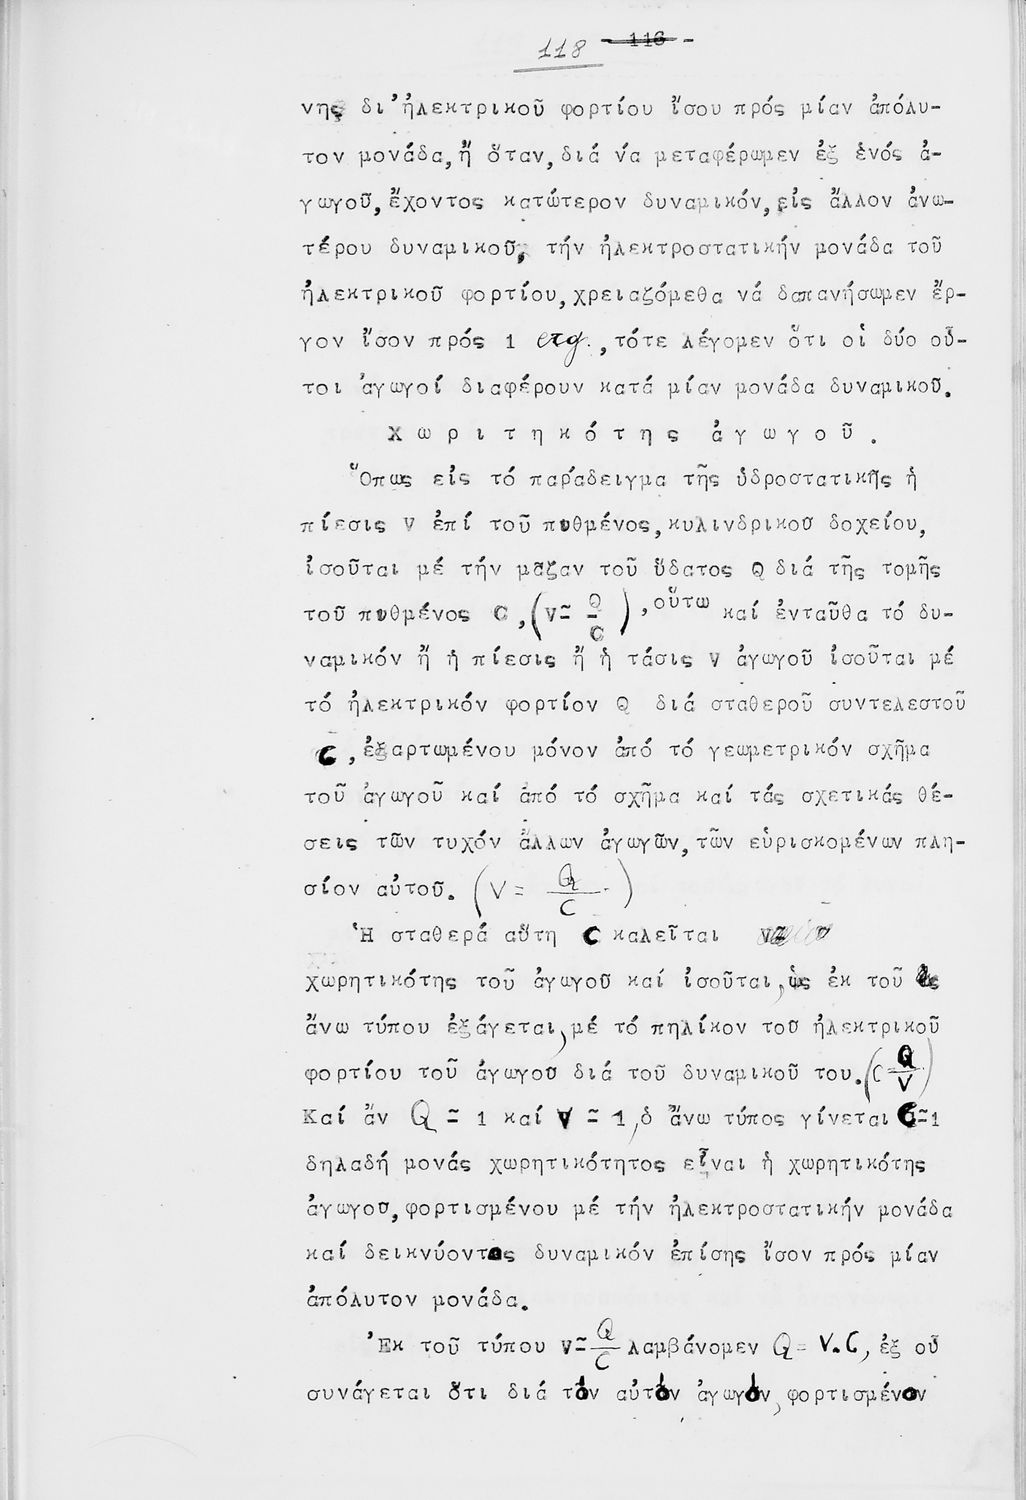 118 - 116 -
νης δι’ἠλεκτρικοῦ φορτίου ἴσου πρός μίαν ἀπόλυ-
τον μονάδα, ἤ ὅταν, διά νά μεταφέρωμεν ἐξ ἑνός ἀ-
γωγοῦ, ἔχοντος κατώτερον δυναμικόν, εἰς ἄλλον ἀνω-
τέρου δυναμικοῦ, τήν ἠλεκτροστατικήν μονάδα τοῦ
ἠλεκτρικοῦ φορτίου, χρειαζόμεθα νά δαπανήσωμεν ἔρ-
γον ἴσον πρός 1 erg., τότε λέγομεν ὅτι οἱ δύο οὗ-
τοι ἀγωγοί διαφέρουν κατά μίαν μονάδα δυναμικοῦ.
Χωριτηκότης ἀγωγοῦ.
Ὅπως εἰς τό παράδειγμα τῆς ὑδροστατικῆς ἡ
πίεσις V ἐπί τοῦ πυθμένος, κυλινδρικοῦ δοχείου,
ἰσοῦται μέ τήν μᾶζαν τοῦ ὕδατος Q διά τῆς τομῆς
τοῦ πυθμένος C, (V = Q/C), οὕτω καί ἐνταῦθα τό δυ-
ναμικόν ἤ ἡ πίεσις ἤ ἡ τάσις V ἀγωγοῦ ἰσοῦται μέ
τό ἠλεκτρικόν φορτίον Q διά σταθεροῦ συντελεστοῦ
C, ἐξαρτωμένου μόνον ἀπό τό γεωμετρικόν σχῆμα
τοῦ ἀγωγοῦ καί ἀπό τό σχῆμα καί τάς σχετικάς θέ-
σεις τῶν τυχόν ἄλλων ἀγωγῶν, τῶν εὑρισκομένων πλη-
σίον αὐτοῦ. (V = Q/C)
Ἡ σταθερά αὕτη C καλεῖται
χωρητικότης τοῦ ἀγωγοῦ καί ἰσοῦται, ὡς ἐκ τοῦ
ἄνω τύπου ἐξάγεται, μέ τό πηλίκον τοῦ ἠλεκτρικοῦ
φορτίου τοῦ ἀγωγοῦ διά τοῦ δυναμικοῦ του. (C = Q/V)
Καί ἄν Q = 1 καί V = 1, ὁ ἄνω τύπος γίνεται C=1
δηλαδή μονάς χωρητικότητος εἶναι ἡ χωρητικότης
ἀγωγοῦ, φορτισμένου μέ τήν ἠλεκτροστατικήν μονάδα
καί δεικνύοντος δυναμικόν ἐπίσης ἴσον πρός μίαν
ἀπόλυτον μονάδα.
Ἐκ τοῦ τύπου V = Q/C λαμβάνομεν Q = V.C, ἐξ οὗ
συνάγεται ὅτι διά τόν αὐτόν ἀγωγόν, φορτισμένον